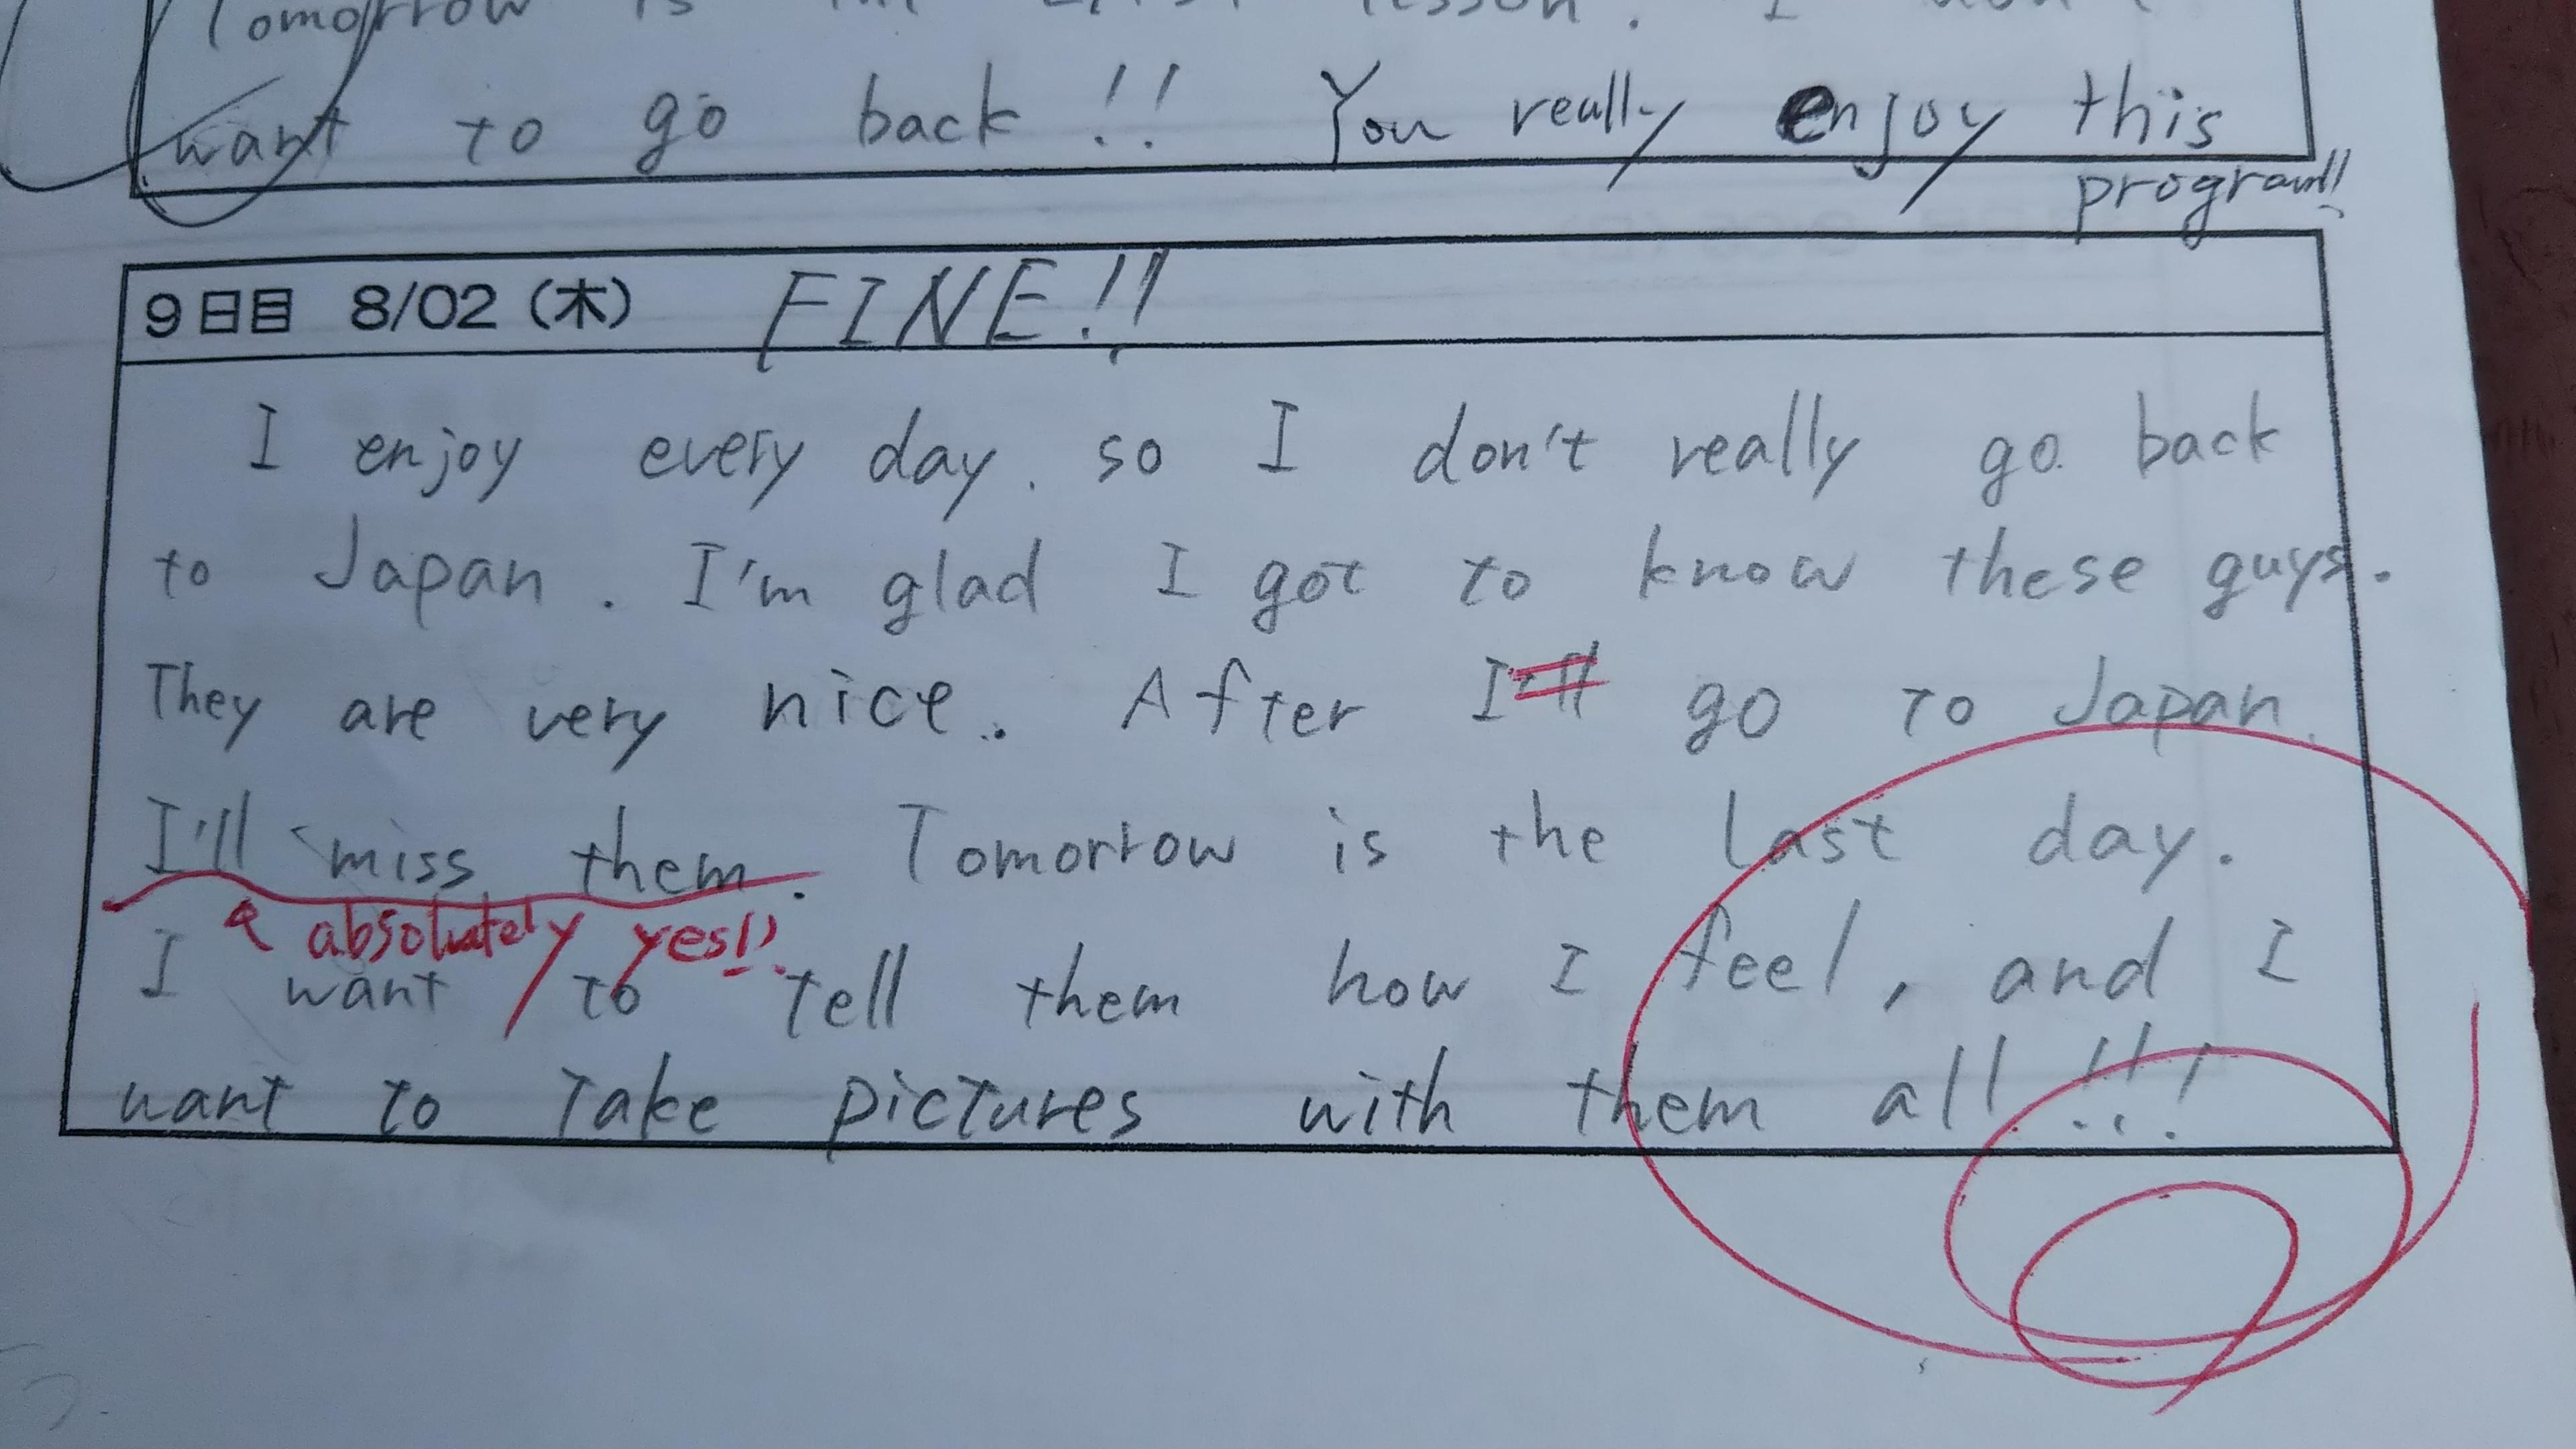 Tomorrow is the last lesson. I don't
want to go back!! You really enjoy this
program!!
9日目 8/02（木） FINE!!
I enjoy every day. so I don't really go back
to Japan. I'm glad I got to know these guys.
They are very nice. After I'll go to Japan.
I'll miss them. Tomorrow is the last day.
absolutely yes!!
I want to tell them how I feel, and I
want to take pictures with them all!!!